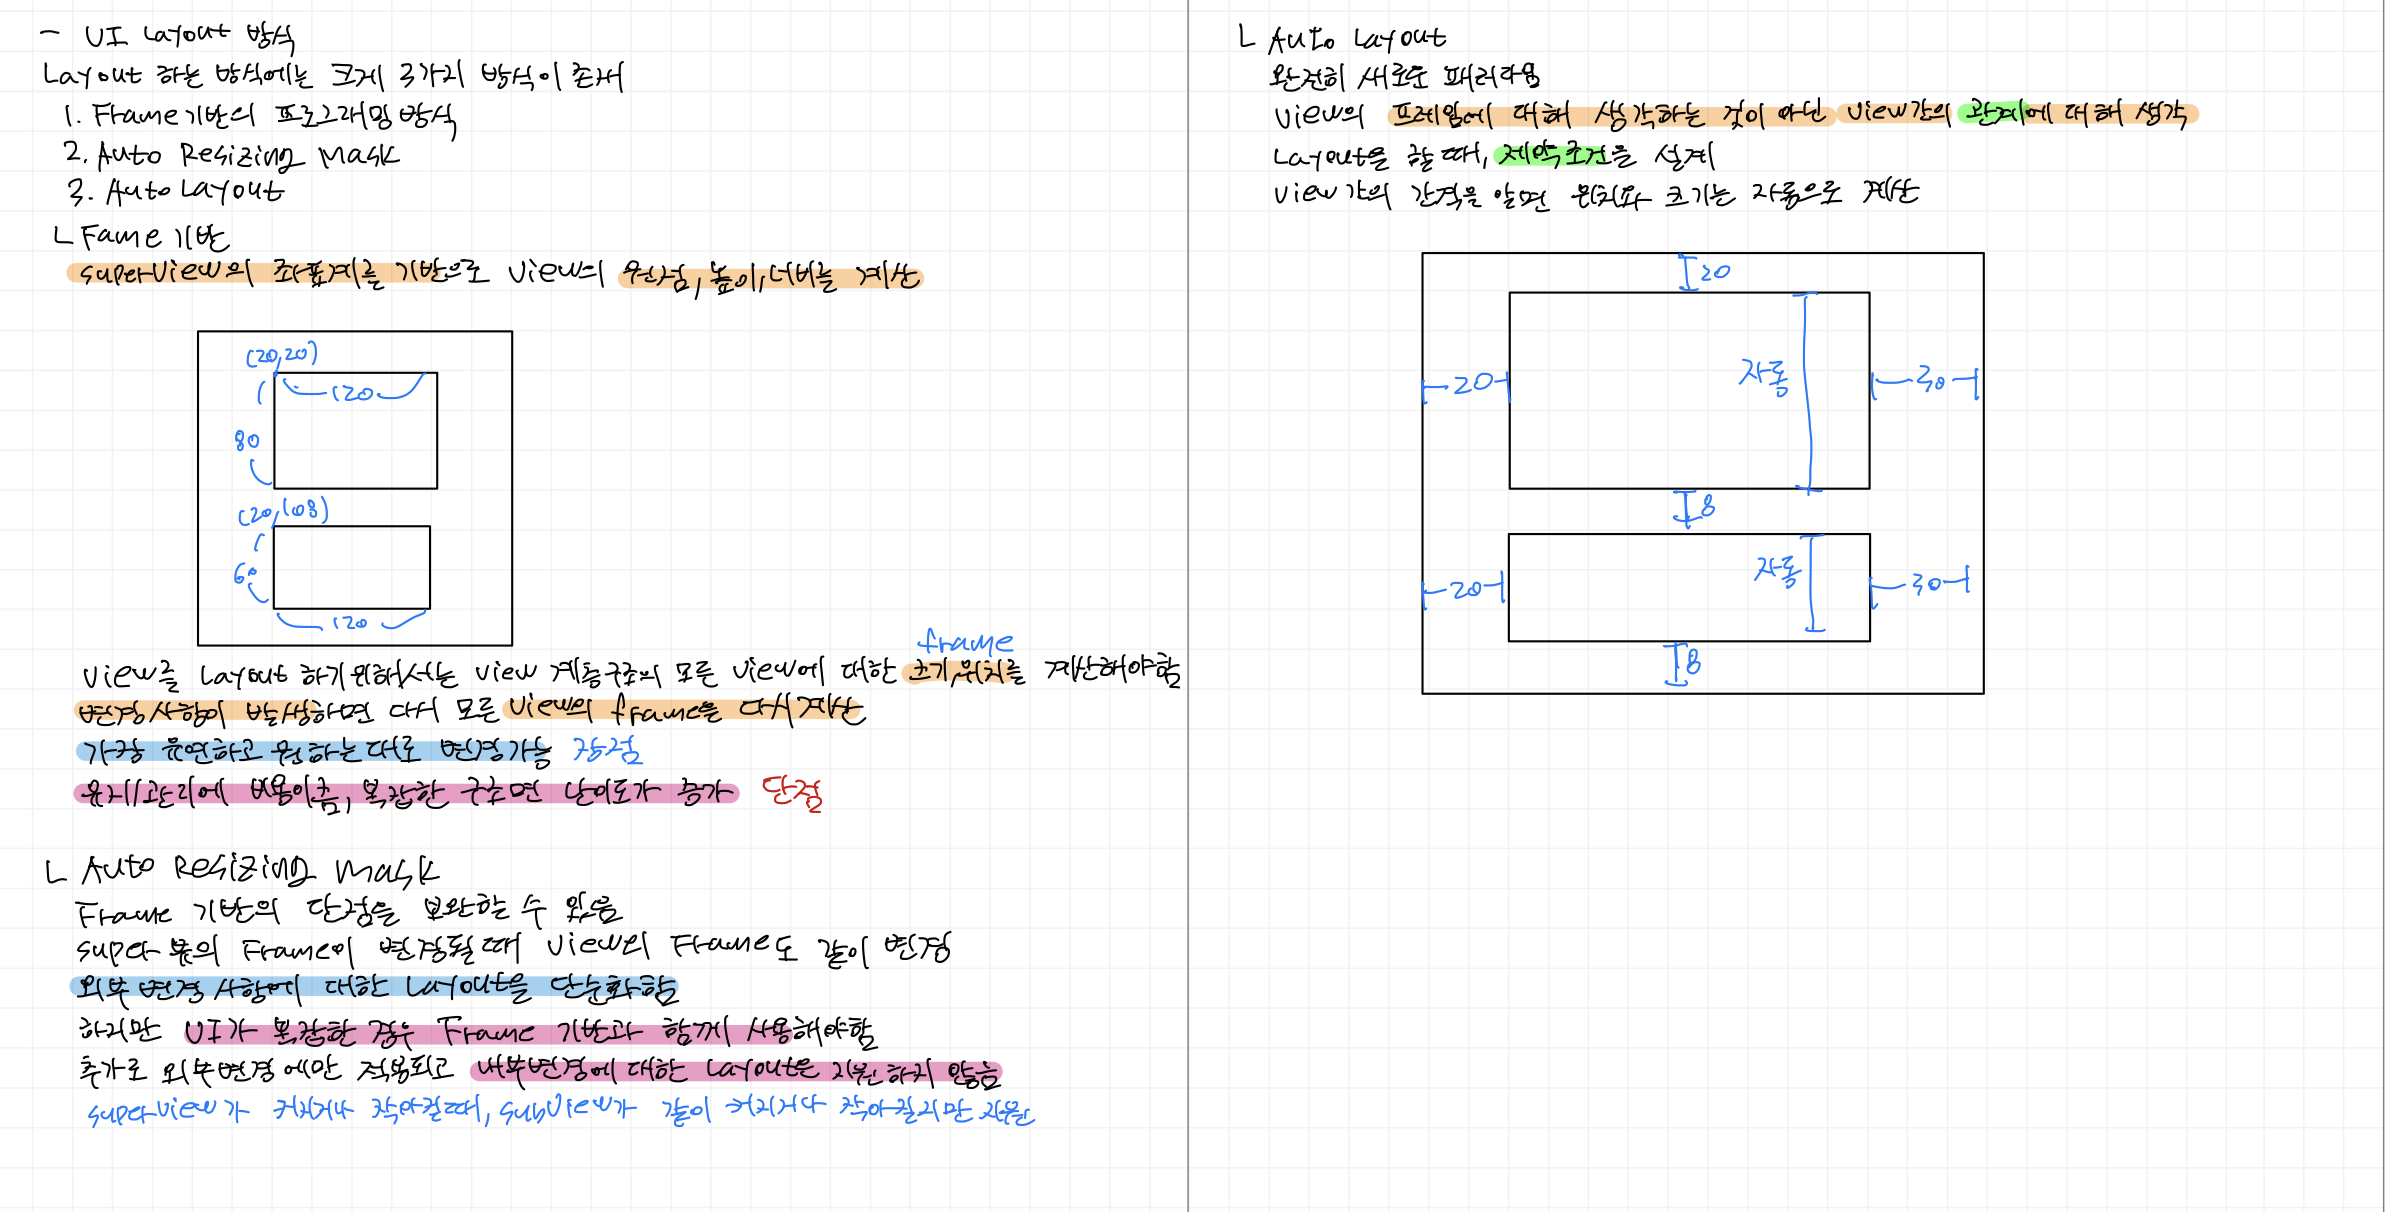 - UI Layout 방식
Layout 하는 방식에는 크게 3가지 방식이 존재
1. Frame기반의 프로그래밍 방식
2. Auto Resizing Mask
3. Auto Layout
ㄴ Fame 기반
superView의 좌표계를 기반으로 View의 원점, 높이, 너비를 계산
(20,20)
120
80
(20,108)
60
120
frame
View를 Layout 하기위해서는 View 계층구조의 모든 View에 대한 크기,위치를 계산해야함
변경사항이 발생하면 다시 모든 View의 frame을 다시계산
가장 유연하고 원하는대로 변경가능 장점
유지/관리에 비용이큼, 복잡한 구조면 난이도가 증가 단점
ㄴ Auto Resizing Mask
Frame 기반의 단점을 보완할 수 있음
super 뷰의 Frame이 변경될때 View의 Frame도 같이 변경
외부 변경 사항에 대한 Layout을 단순화함
하지만 UI가 복잡한 경우 Frame 기반과 함께 사용해야함
추가로 외부변경에만 적용되고 내부변경에 대한 Layout은 지원하지 않음
superView가 커지거나 작아질때, subView가 같이 커지거나 작아질지만 지원
ㄴ Auto Layout
완전히 새로운 패러다임
View의 프레임에 대해 생각하는 것이 아닌 View간의 관계에 대해 생각
Layout을 할 때, 제약조건을 설계
View 간의 간격을 알면 위치와 크기는 자동으로 계산
20
20
자동
30
8
20
자동
30
8